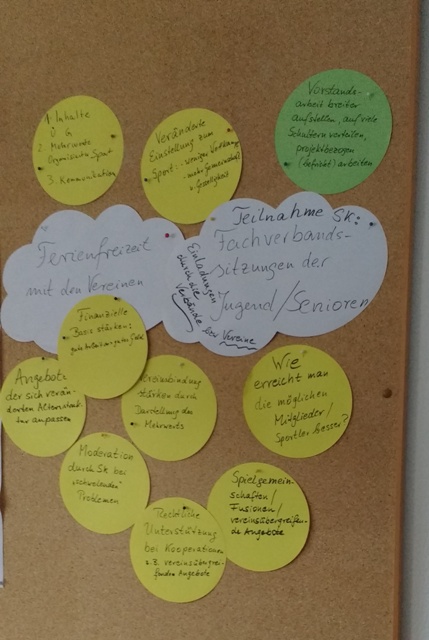 1. Inhalte
Ü G
2. Mehrwerte
Organisierter Sport
3. Kommunikation
Veränderte
Einstellung zum
Sport: - weniger
- mehr Gemeinschaft
u. Geselligkeit
Vorstands-
arbeit breiter
aufstellen, auf viele
Schultern verteilen,
projektbezogen
(befristet) arbeiten
Ferienfreizeit
mit den Vereinen
Teilnahme SK:
Fachverbands-
sitzungen der
Jugend/Senioren
Einladungen
durch die
Verbände bzw Vereine
Finanzielle
Basis stärken:
gute Arbeit = gutes Geld
Angebote
der sich verän-
dernden Altersstruk-
tur anpassen
Vereinsbindung
stärken durch
Darstellung des
Mehrwerts
Wie
erreicht man
die möglichen
Mitglieder/
Sportler besser?
Moderation
durch SK bei
"schwelenden"
Problemen
Spielgemein-
schaften/
Fusionen/
vereinsübergreifen-
de Angebote
Rechtliche
Unterstützung
bei Kooperationen
z.B. vereinsübergrei-
fenden Angebote